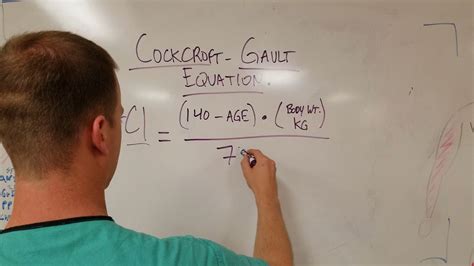 COCKCROFT-GAULT
EQUATION
Cl = (140 - AGE) • (BODY WT. KG)
7